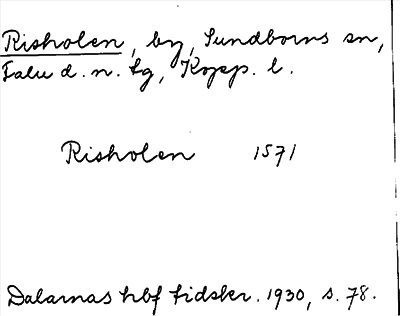 Risholen, by, Sundborns sn,
Falu d. n. tg, Kopp. l.
Risholen 1571
Dalarnas hbf tidskr. 1930, s. 78.